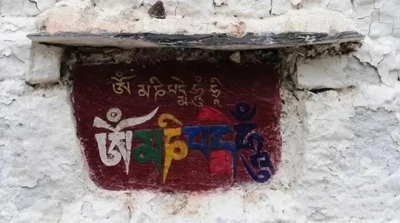 ༀམཎིཔདྨེཧཱུྃཧྲཱིཿ
ༀམཎིཔདྨེཧཱུྃ